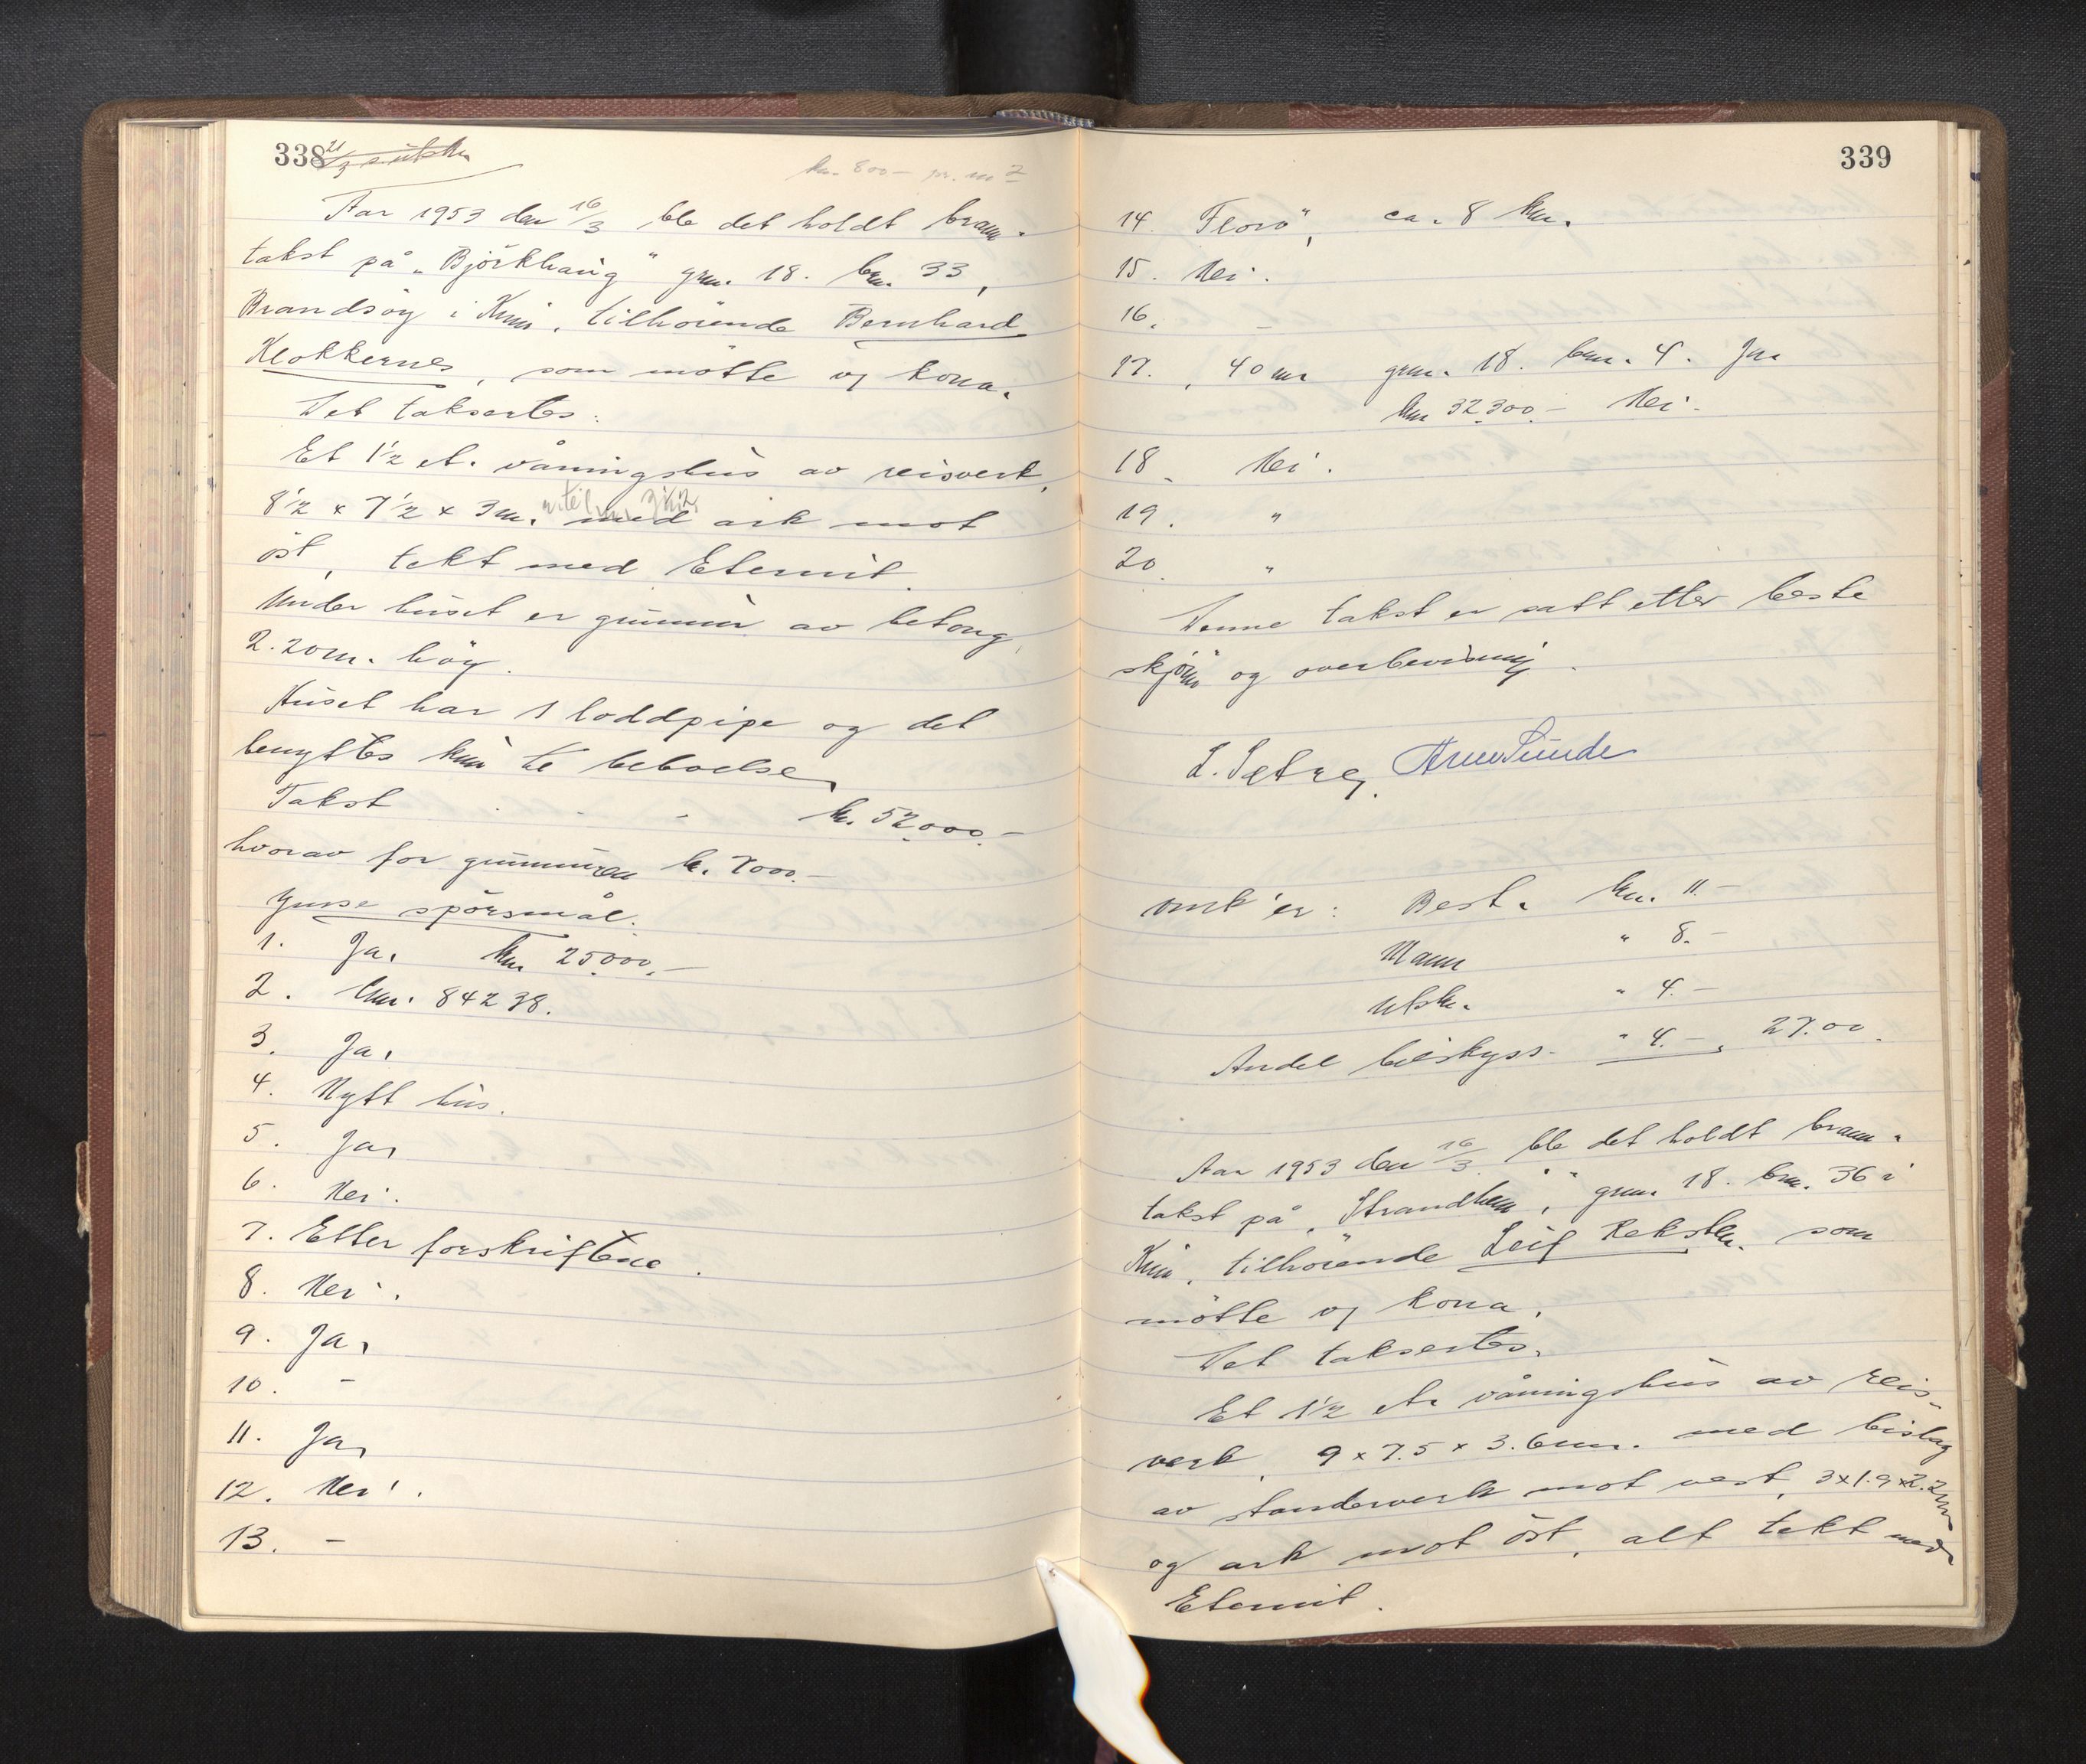 338 21/3 utskr.
kr. 800 - pr. m2
Aar 1953 den 16/3 ble det holdt brann-
takst på „Björkhaug" gnr. 18. bnr. 33,
Brandsøy i Kinn, tilhörende Bernhard
Klokkernes, som mötte og kona.
Det taksertes:
Et 1½ et. våningshus av reisverk,
8½ x 7½ x 3m. med ark mot
öst, tekt med Eternit.
Under huset er grunnur av betong,
2.20m. höy.
Huset har 1 loddpipe og det
benyttes kun til beboelse.
Takst kr. 52000.-
hvorav for grunnuren kr. 7000.-
Ymse spörsmål.
1. Ja, kr. 25000.-
2. bnr. 84238.
3. Ja,
4. Nytt hus.
5. Ja,
6. Nei.
7. Etter forskriftene.
8. Nei.
9. Ja,
10. -
11. Ja,
12. Nei.
13. -
339
14. Florö, ca. 8 km.
15. Nei.
16. -
17. 40 m gnr. 18. bnr. 4. Ja
kr 32300.- Nei.
18. Nei.
19. "
20. "
Denne takst er satt etter beste
skjönn og overbevisning.
L. Sætre, Arne Sunde
Omk'er: Best. kr. 11.-
Mann " 8.-
Utskr. " 4.-
Andel bilskyss " 4.-, 27.00.
Aar 1953 den 16/3 ble det holdt brann-
takst på „Strandheim", gnr. 18. bnr. 36 i
Kinn, tilhörende Leif Reksten. som
mötte og kona.
Det taksertes.
Et 1½ et. våningshus av reis-
verk, 9 x 7.5 x 3.6m. med bislag
av standerverk mot vest, 3x1.9x2.2m
og ark mot öst, alt tekt med
Eternit.